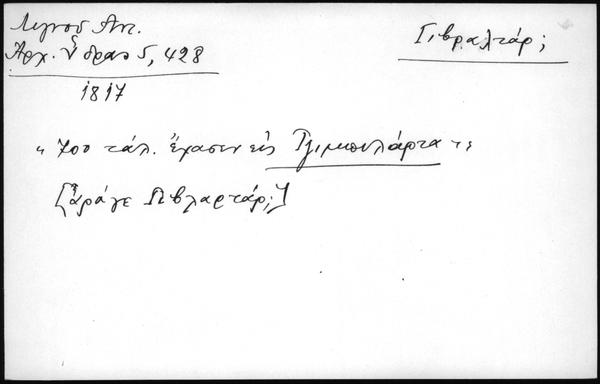 Λιγνού Αντ.
Αρχ. Ύδρας 5, 428
1817
Γιβραλτάρ;
" 700 τάλ. έχασεν εις Τζιμπιλάρτα "
[άράγε Γιβλαρτάρ;]